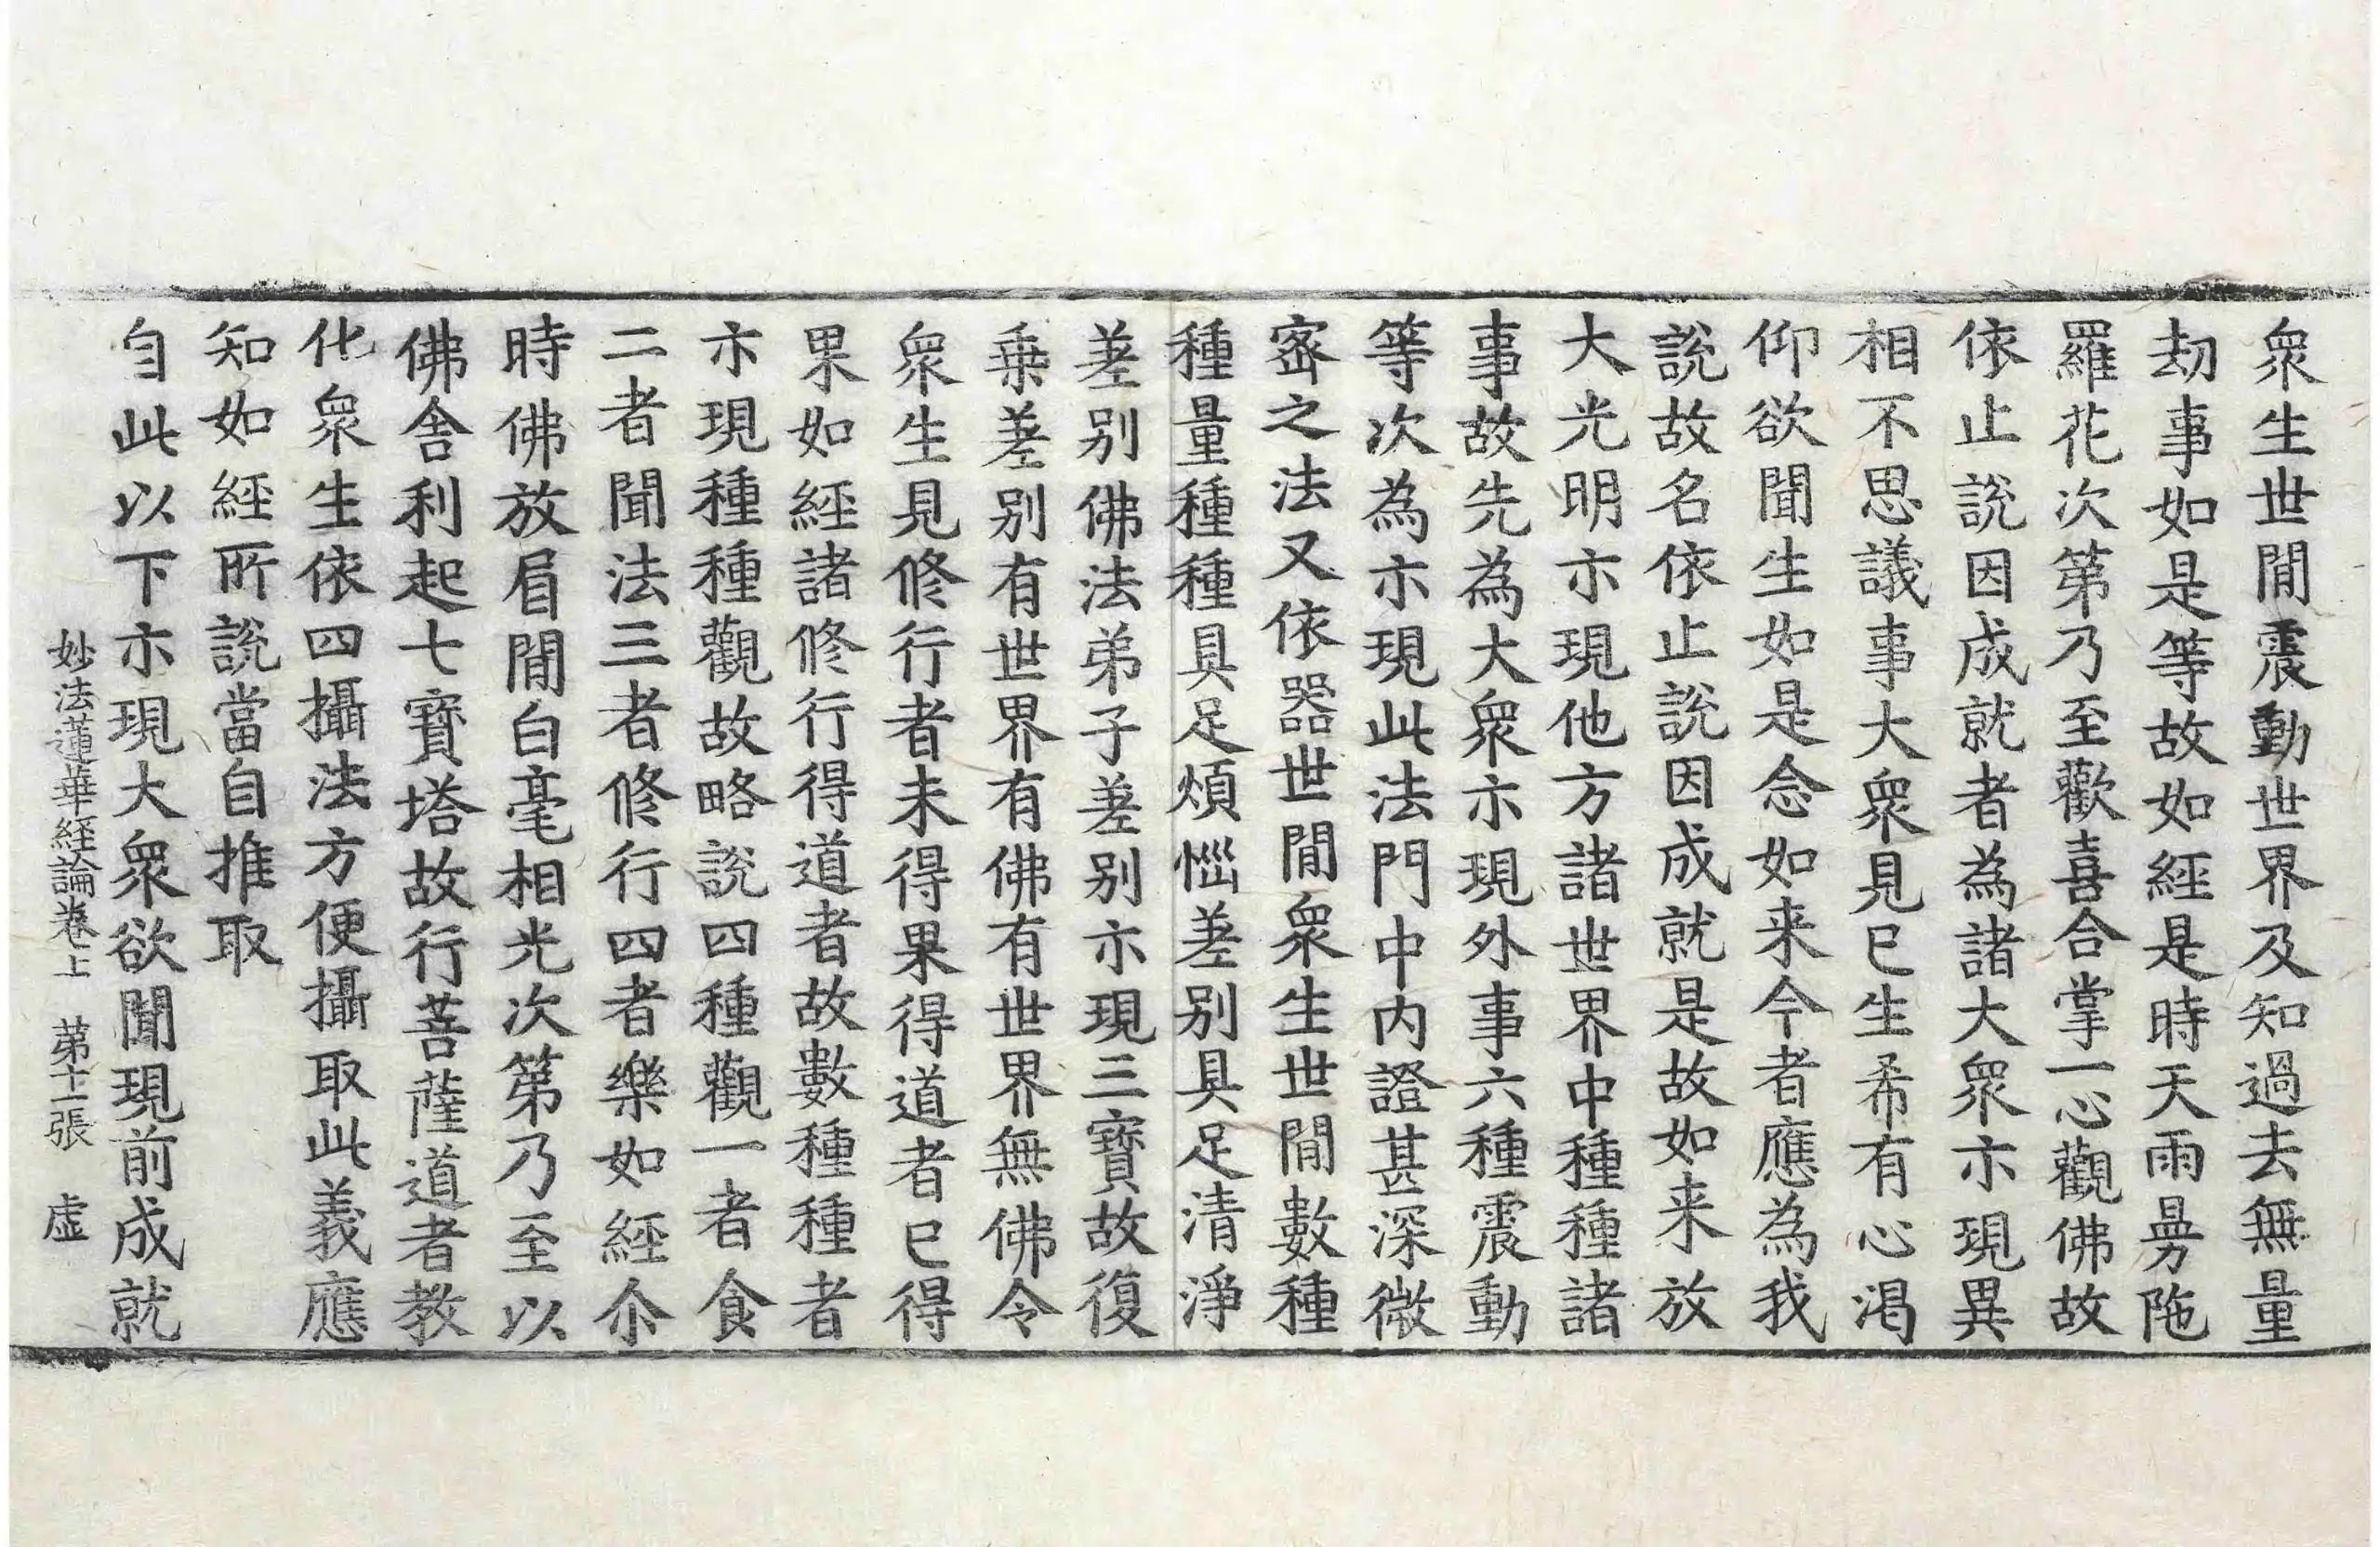 眾生世閒震動世界及知過去無量
劫事如是等故如經是時天雨曼陁
羅花次第乃至歡喜合掌一心觀佛故
依止說因成就者為諸大眾示現異
相不思議事大眾見已生希有心渴
仰欲聞生如是念如来今者應為我
說故名依止說因成就是故如来放
大光明示現他方諸世界中種種諸
事故先為大眾示現外事六種震動
等次為示現此法門中內證甚深微
宻之法又依器世閒眾生世閒數種
種量種種具足煩惱差別具足清淨
差別佛法弟子差別示現三寶故復
乘差別有世界有佛有世界無佛令
眾生見修行者未得果得道者已得
果如經諸修行得道者故數種種者
示現種種觀故略說四種觀一者食
二者聞法三者修行四者樂如經尒
時佛放眉閒白毫相光次第乃至以
佛舍利起七寶塔故行菩薩道者教
化眾生依四攝法方便攝取此義應
知如經所說當自推取
自此以下示現大眾欲聞現前成就
妙法蓮華經論卷上 第十二張 虛